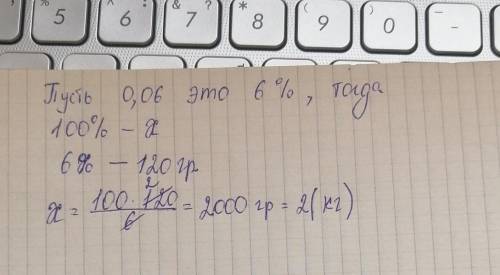 % 5 ^ : 6 & ? 7 * 8 ( 9 ) 0 _ -
Пусть 0,06 это 6%, тогда
100% — x
6% — 120 гр
x = 100 · 120 / 6 = 2000 гр = 2 (кг)
2